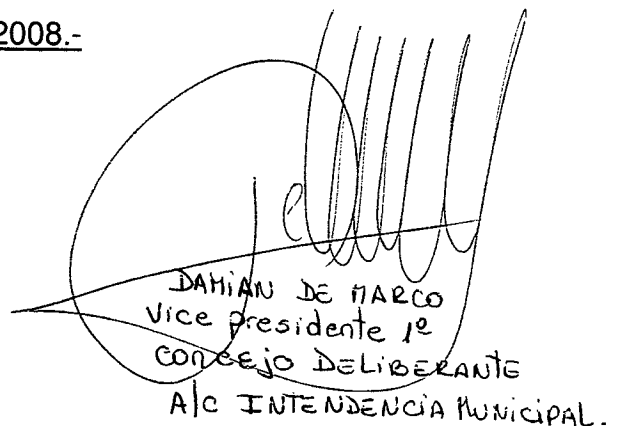 2008.-
DAMIAN DE MARCO
Vice presidente 1º
CONCEJO DELIBERANTE
A/C INTENDENCIA MUNICIPAL.